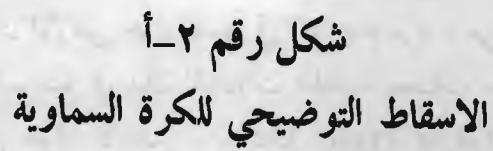 شكل رقم ٢ـأ
الاسقاط التوضيحي للكرة السماوية